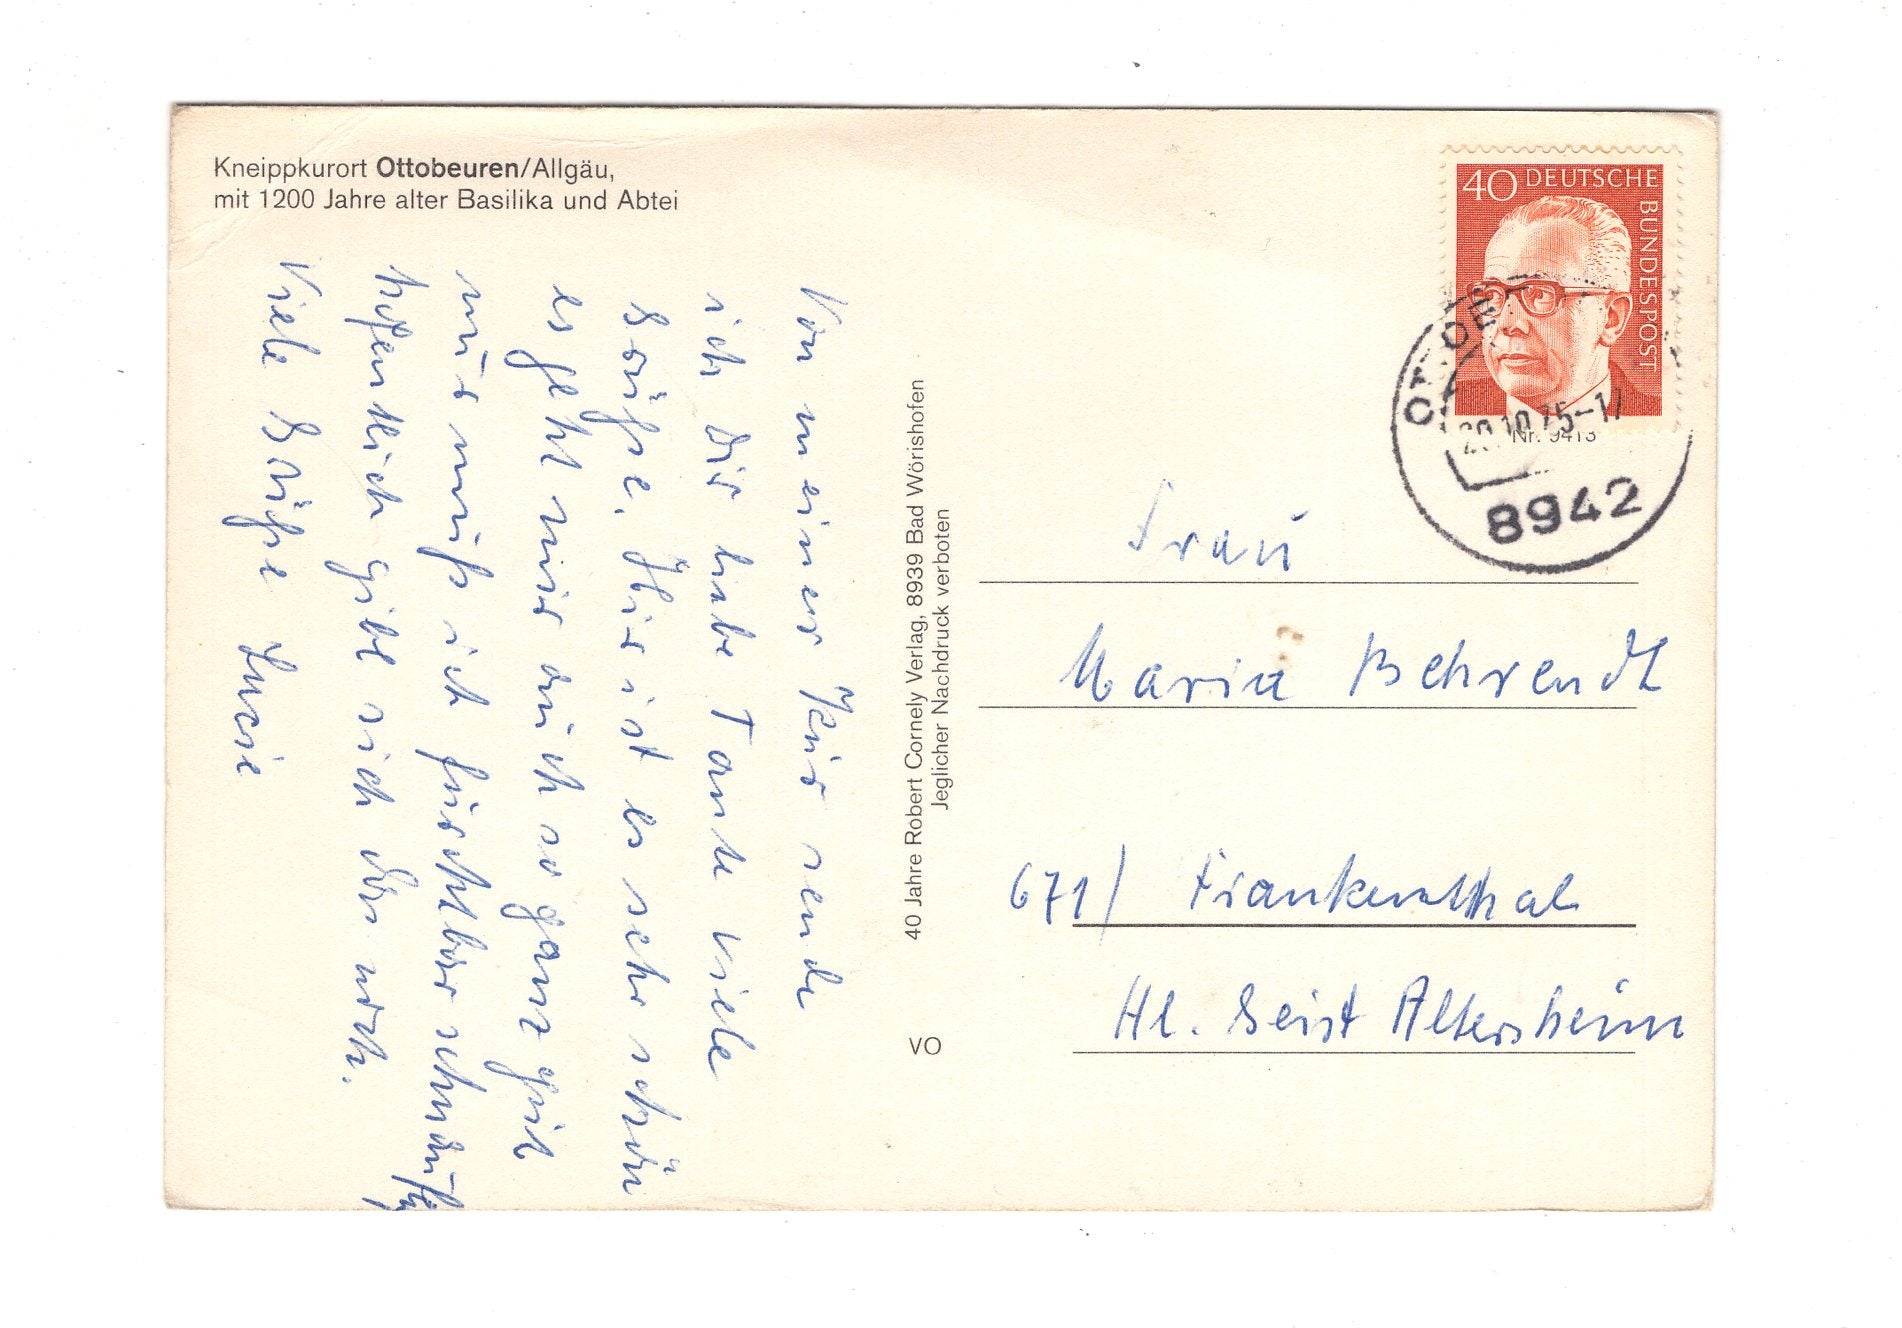 Kneippkurort Ottobeuren/Allgäu,
mit 1200 Jahre alter Basilika und Abtei
Von meiner Kur sende
ich Dir liebe Tante viele
Grüße. Hier ist es sehr schön
es geht mir auch so ganz gut
nur muß ich furchtbar schnaufen
hofentlich gibt sich das noch.
Viele Grüße Lucie
40 Jahre Robert Cornely Verlag, 8939 Bad Wörishofen
Jeglicher Nachdruck verboten
VO
40 DEUTSCHE
BUNDESPOST
Nr. 9413
8942
Frau
Maria Behrendt
671/ Frankenthal
Hl. Geist Altersheim